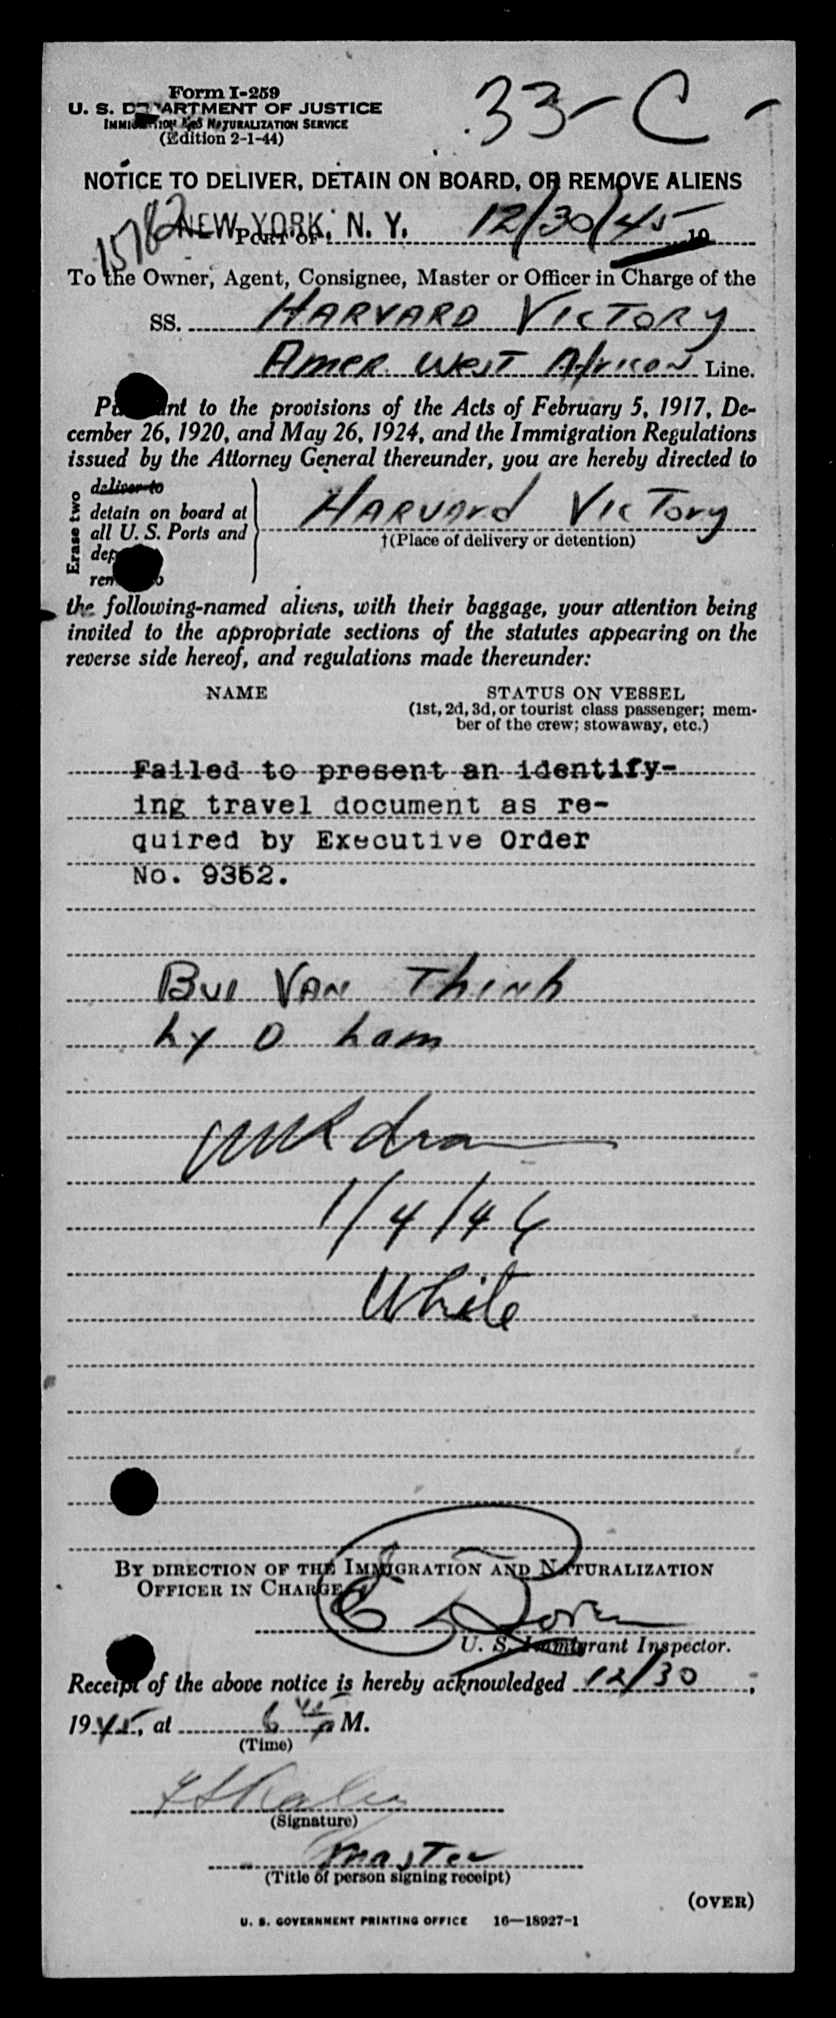 Form I-259
33-C
U. S. DEPARTMENT OF JUSTICE
IMMIGRATION AND NATURALIZATION SERVICE
(Edition 2-1-44)
NOTICE TO DELIVER, DETAIN ON BOARD, OR REMOVE ALIENS
15782
NEW YORK, N. Y. 12/30/45
PORT OF 19
To the Owner, Agent, Consignee, Master or Officer in Charge of the
SS. HARVARD VICTORY
Amer West African Line.
Pursuant to the provisions of the Acts of February 5, 1917, De-
cember 26, 1920, and May 26, 1924, and the Immigration Regulations
issued by the Attorney General thereunder, you are hereby directed to
Erase two
deliver to
detain on board at
all U. S. Ports and
HARVARD VICTORY
†(Place of delivery or detention)
the following-named aliens, with their baggage, your attention being
invited to the appropriate sections of the statutes appearing on the
reverse side hereof, and regulations made thereunder:
NAME STATUS ON VESSEL
(1st, 2d, 3d, or tourist class passenger; mem-
ber of the crew; stowaway, etc.)
Failed to present an identify-
ing travel document as re-
quired by Executive Order
No. 9352.
BUI VAN Thinh
Ly D Lam
1/4/46
White
BY DIRECTION OF THE IMMIGRATION AND NATURALIZATION
OFFICER IN CHARGE
U. S. Immigrant Inspector.
Receipt of the above notice is hereby acknowledged 12/30,
1945, at 6 45 P M.
(Time)
(Signature)
master
(Title of person signing receipt)
(OVER)
U. S. GOVERNMENT PRINTING OFFICE 16—18927-1